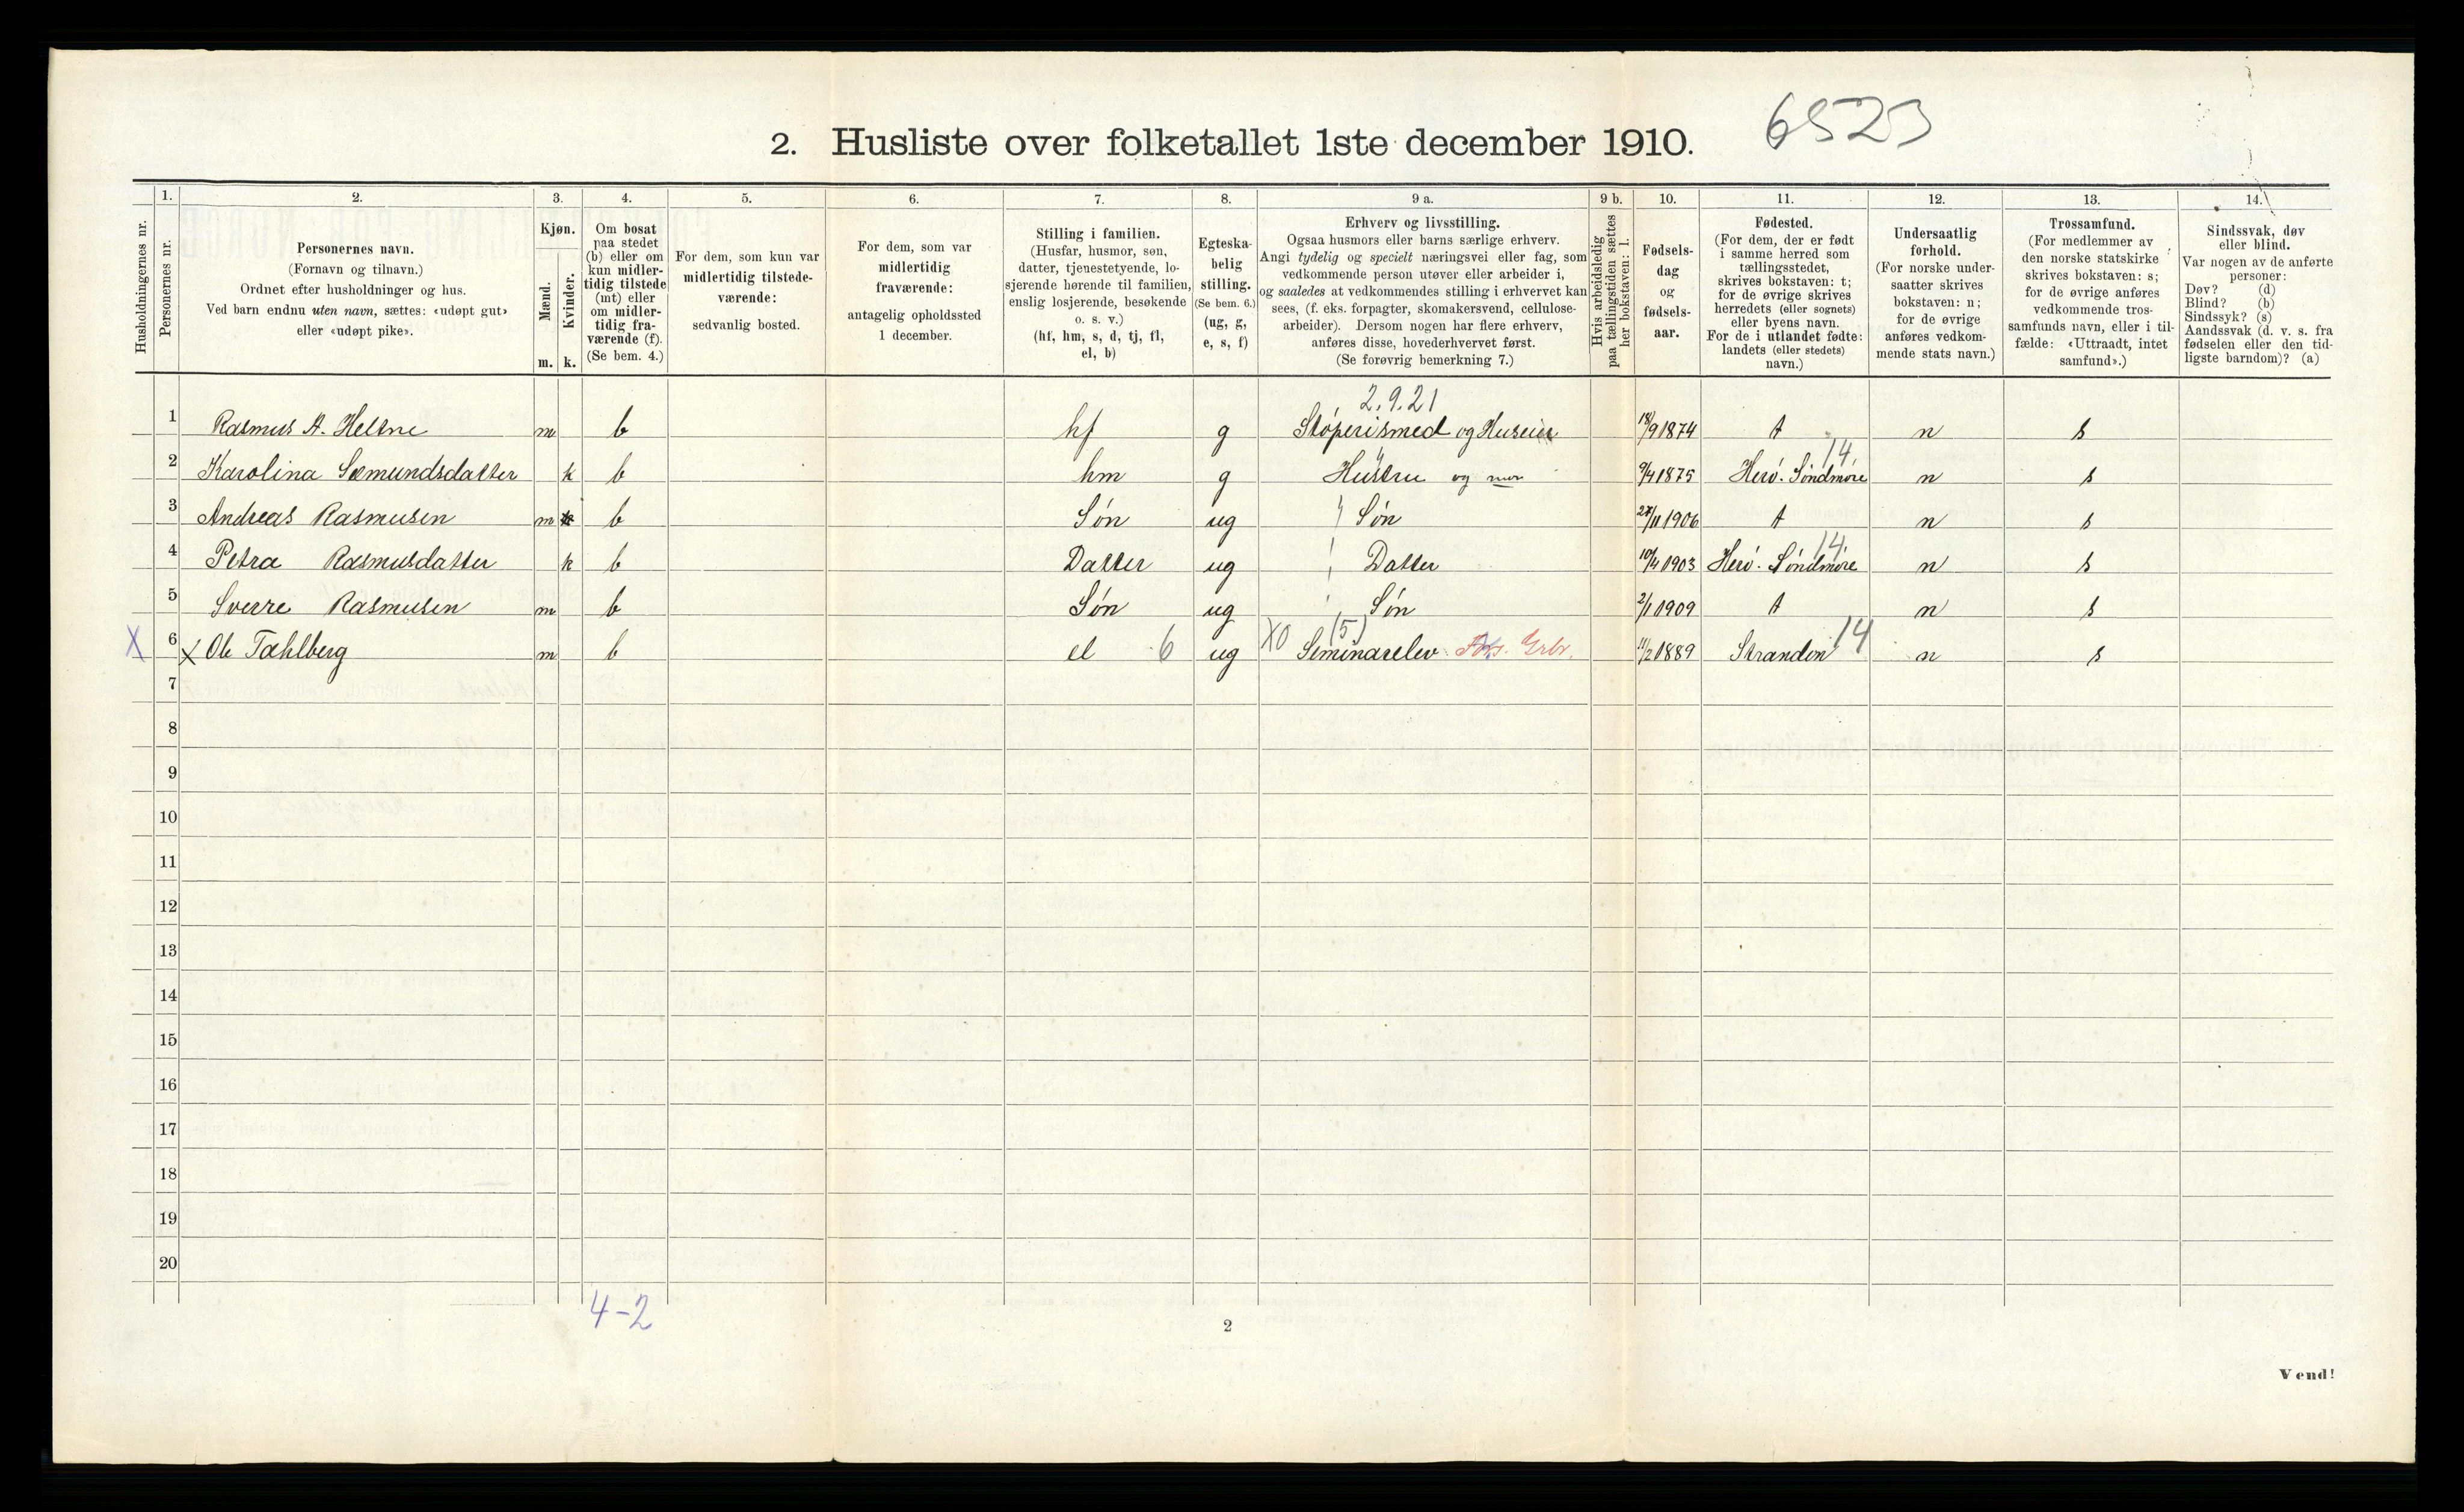 6523
2. Husliste over folketallet 1ste december 1910.
Husholdningernes nr.
1.
Personernes nr.
2.
Personernes navn.
(Fornavn og tilnavn.)
Ordnet efter husholdninger og hus.
Ved barn endnu uten navn, sættes: «udøpt gut»
eller «udøpt pike».
3.
Kjøn.
Mænd.
Kvinder.
m. k.
4.
Om bosat
paa stedet
(b) eller om
kun midler-
tidig tilstede
(mt) eller
om midler-
tidig fra-
værende (f).
(Se bem. 4.)
5.
For dem, som kun var
midlertidig tilstede-
værende:
sedvanlig bosted.
6.
For dem, som var
midlertidig
fraværende:
antagelig opholdssted
1 december.
7.
Stilling i familien.
(Husfar, husmor, søn,
datter, tjenestetyende, lo-
sjerende hørende til familien,
enslig losjerende, besøkende
o. s. v.)
(hf, hm, s, d, tj, fl,
el, b)
8.
Egteska-
belig
stilling.
(Se bem. 6.)
(ug, g,
e, s, f)
9 a.
Erhverv og livsstilling.
Ogsaa husmors eller barns særlige erhverv.
Angi tydelig og specielt næringsvei eller fag, som
vedkommende person utøver eller arbeider i,
og saaledes at vedkommendes stilling i erhvervet kan
sees, (f. eks. forpagter, skomakersvend, cellulose-
arbeider). Dersom nogen har flere erhverv,
anføres disse, hovederhvervet først.
(Se forøvrig bemerkning 7.)
9 b.
Hvis arbeidsledig
paa tællingstiden sættes
her bokstaven: l.
10.
Fødsels-
dag
og
fødsels-
aar.
11.
Fødested.
(For dem, der er født
i samme herred som
tællingsstedet,
skrives bokstaven: t;
for de øvrige skrives
herredets (eller sognets)
eller byens navn.
For de i utlandet fødte:
landets (eller stedets)
navn.)
12.
Undersaatlig
forhold.
(For norske under-
saatter skrives
bokstaven: n;
for de øvrige
anføres vedkom-
mende stats navn.)
13.
Trossamfund.
(For medlemmer av
den norske statskirke
skrives bokstaven: s;
for de øvrige anføres
vedkommende tros-
samfunds navn, eller i til-
fælde: «Uttraadt, intet
samfund».)
14.
Sindssvak, døv
eller blind.
Var nogen av de anførte
personer:
Døv? (d)
Blind? (b)
Sindssyk? (s)
Aandssvak (d. v. s. fra
fødselen eller den tid-
ligste barndom)? (a)
2.9.21
1 Rasmus A. Heltne m b hf g Støperismed og Huseier 18/9 1874 t n s
2 Karolina Sæmundsdatter k b hm g Hustru og mor 9/4 1875 Herø. Søndmøre 14 n s
3 Andreas Rasmusen m b Søn ug Søn 27/11 1906 t n s
4 Petra Rasmusdatter k b Datter ug Datter 10/4 1903 Herø. Søndmøre 14 n s
5 Sverre Rasmusen m b Søn ug Søn 2/1 1909 t n s
X 6 x Ole Tahlberg m b el 6 ug X0 (5) Seminarelev 11/2 1889 Stranden 14 n s
7
8
9
10
11
12
13
14
15
16
17
18
19
20
4-2
2
Vend!